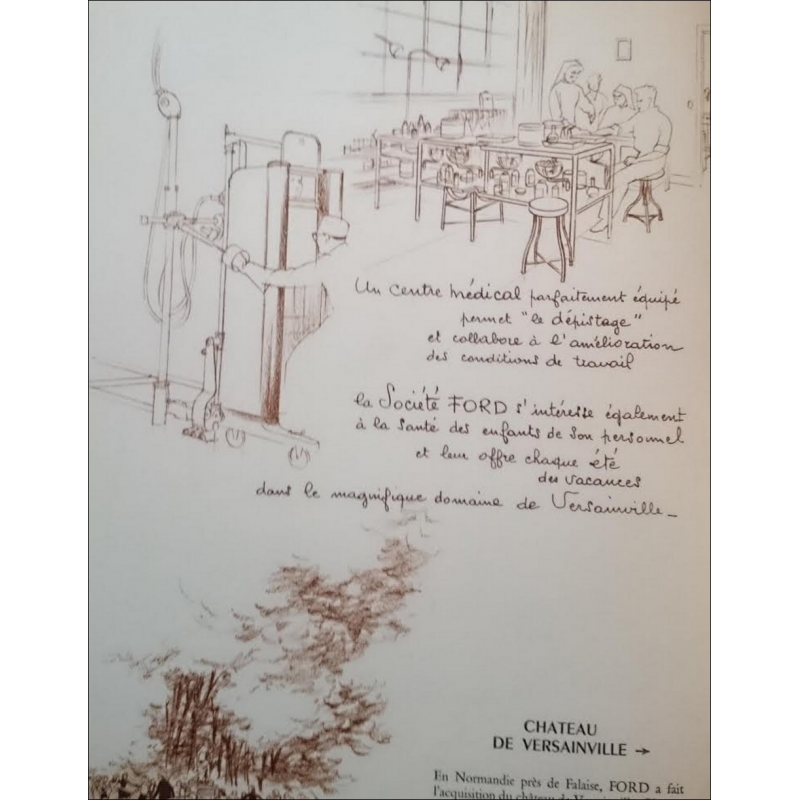 Un centre médical parfaitement équipé
permet "le dépistage"
et collabore à l'amélioration
des conditions de travail
la Société FORD s'intéresse également
à la santé des enfants de son personnel
et leur offre chaque été
des vacances
dans le magnifique domaine de Versainville_
CHATEAU
DE VERSAINVILLE →
En Normandie près de Falaise, FORD a fait
l'acquisition du château de